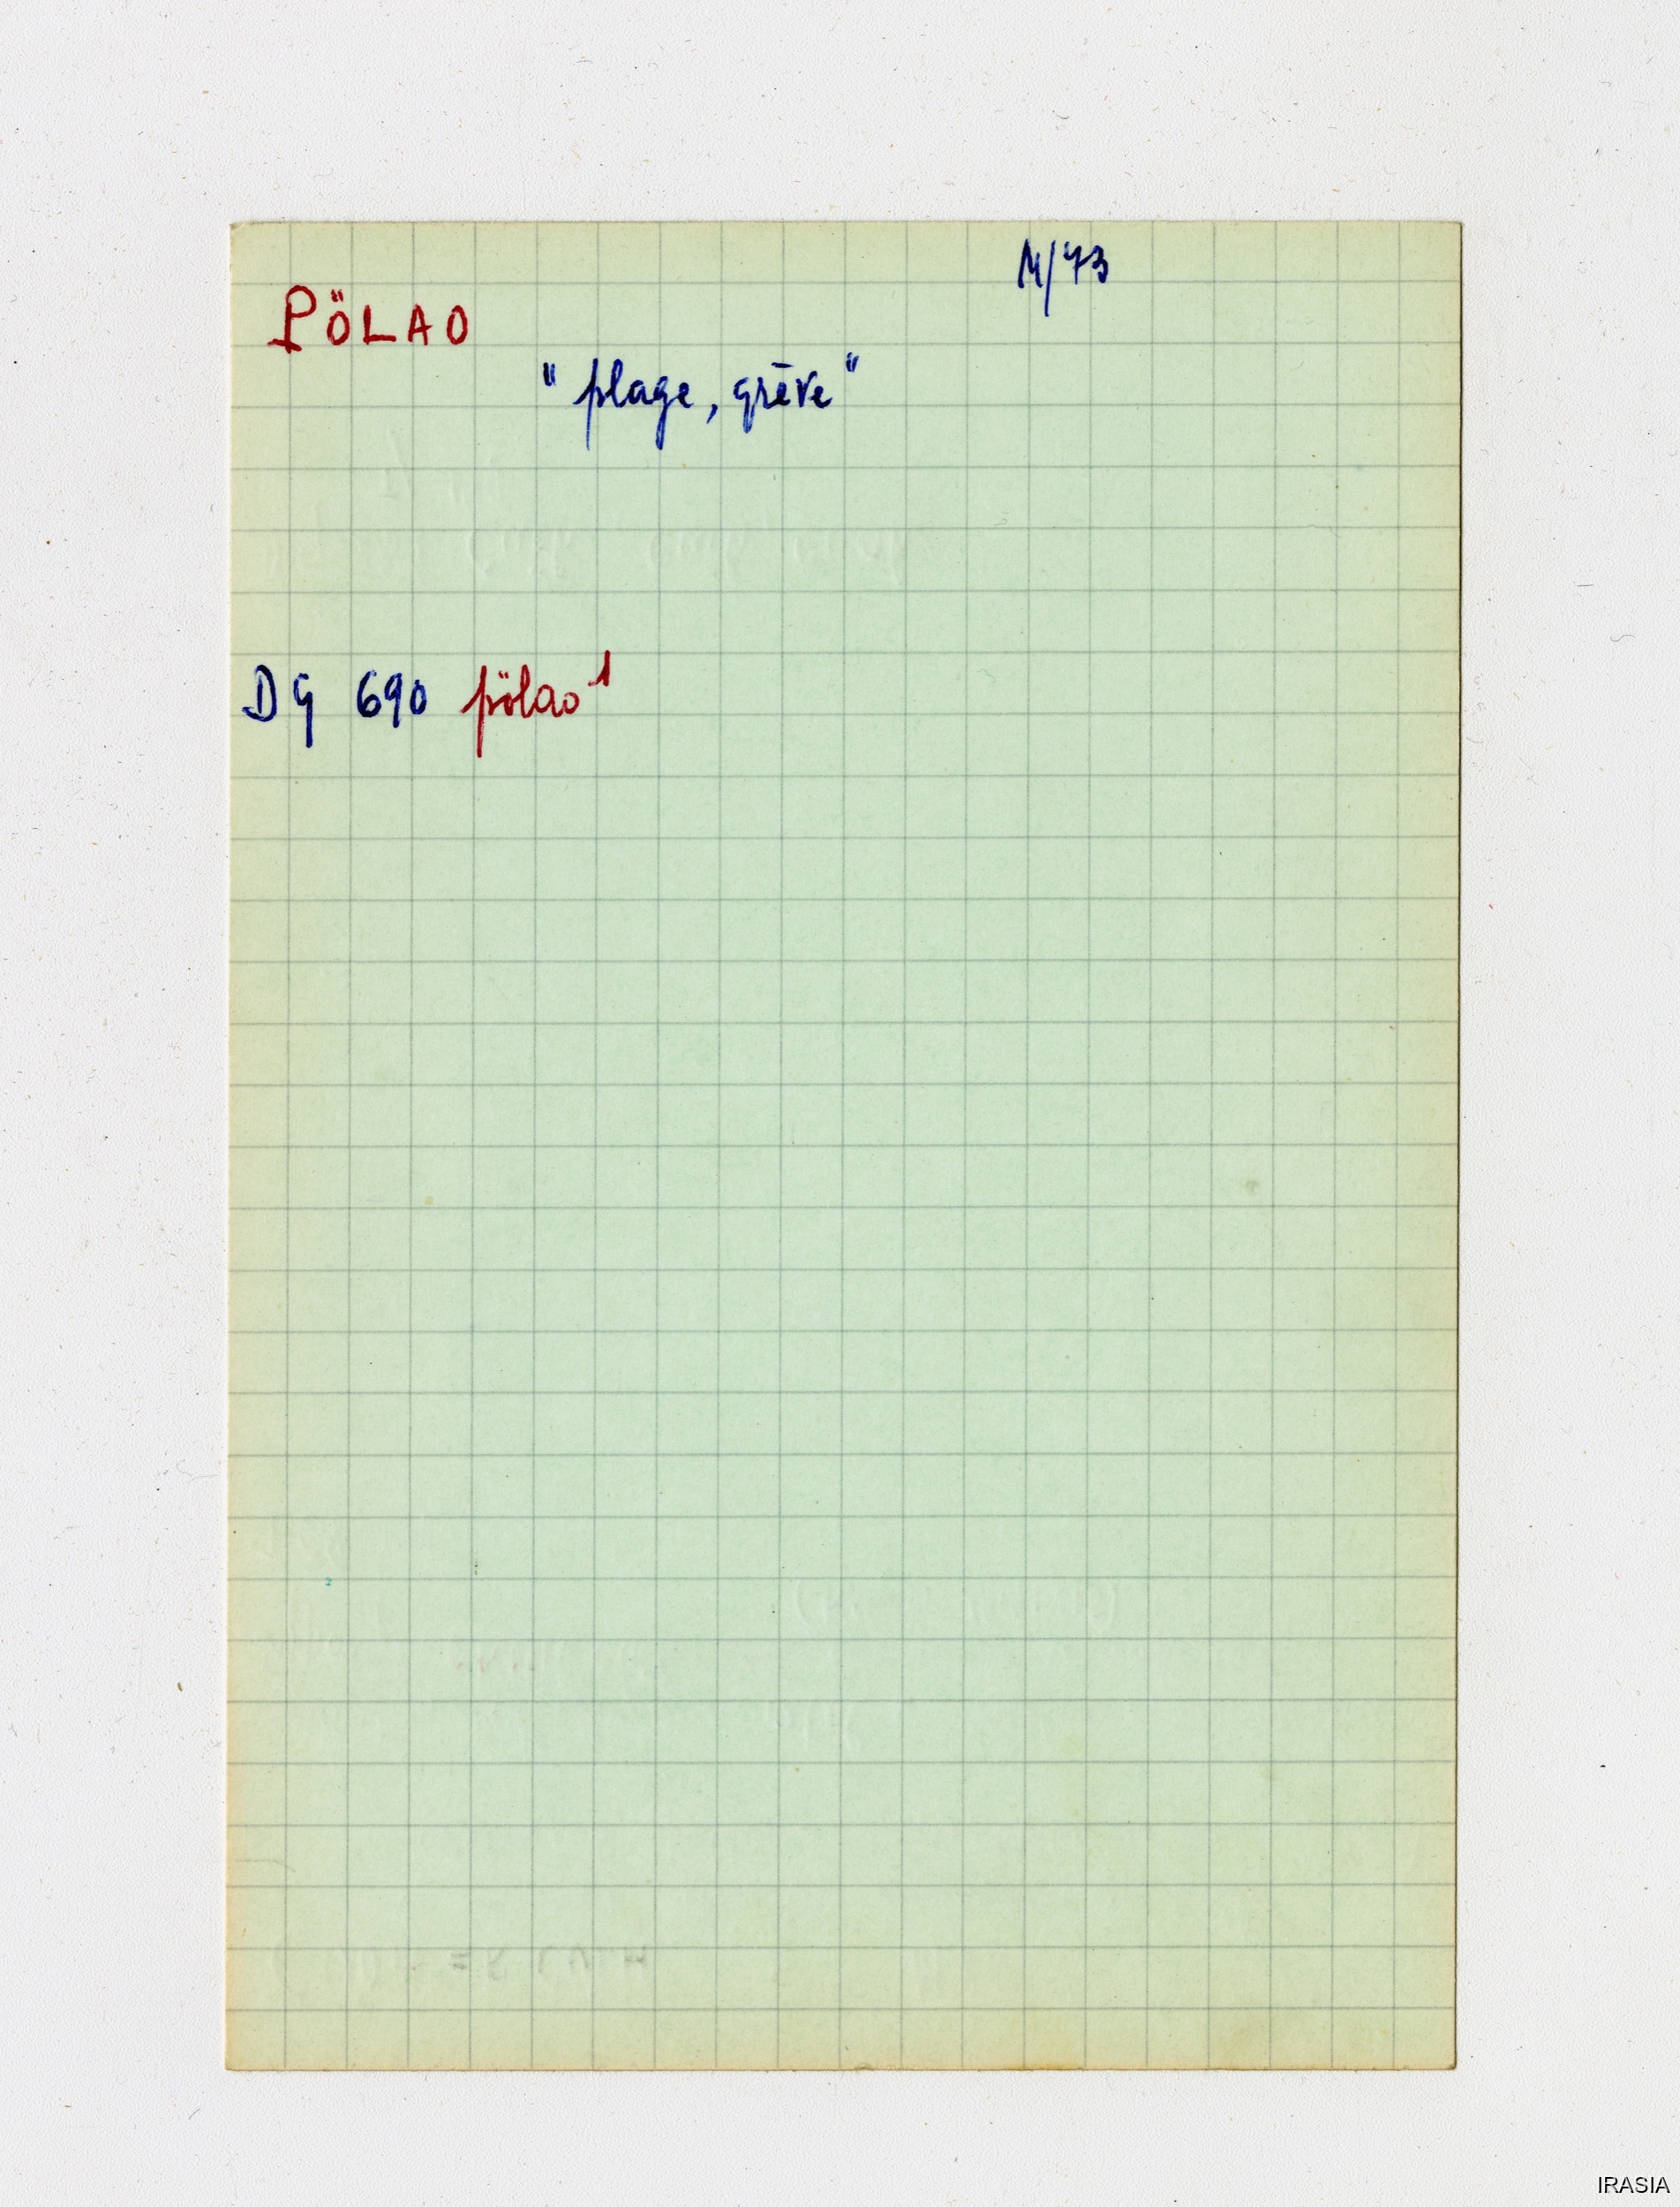 M/73
PÖLAO
"plage, grève"
DG 690 pölao¹
IRASIA